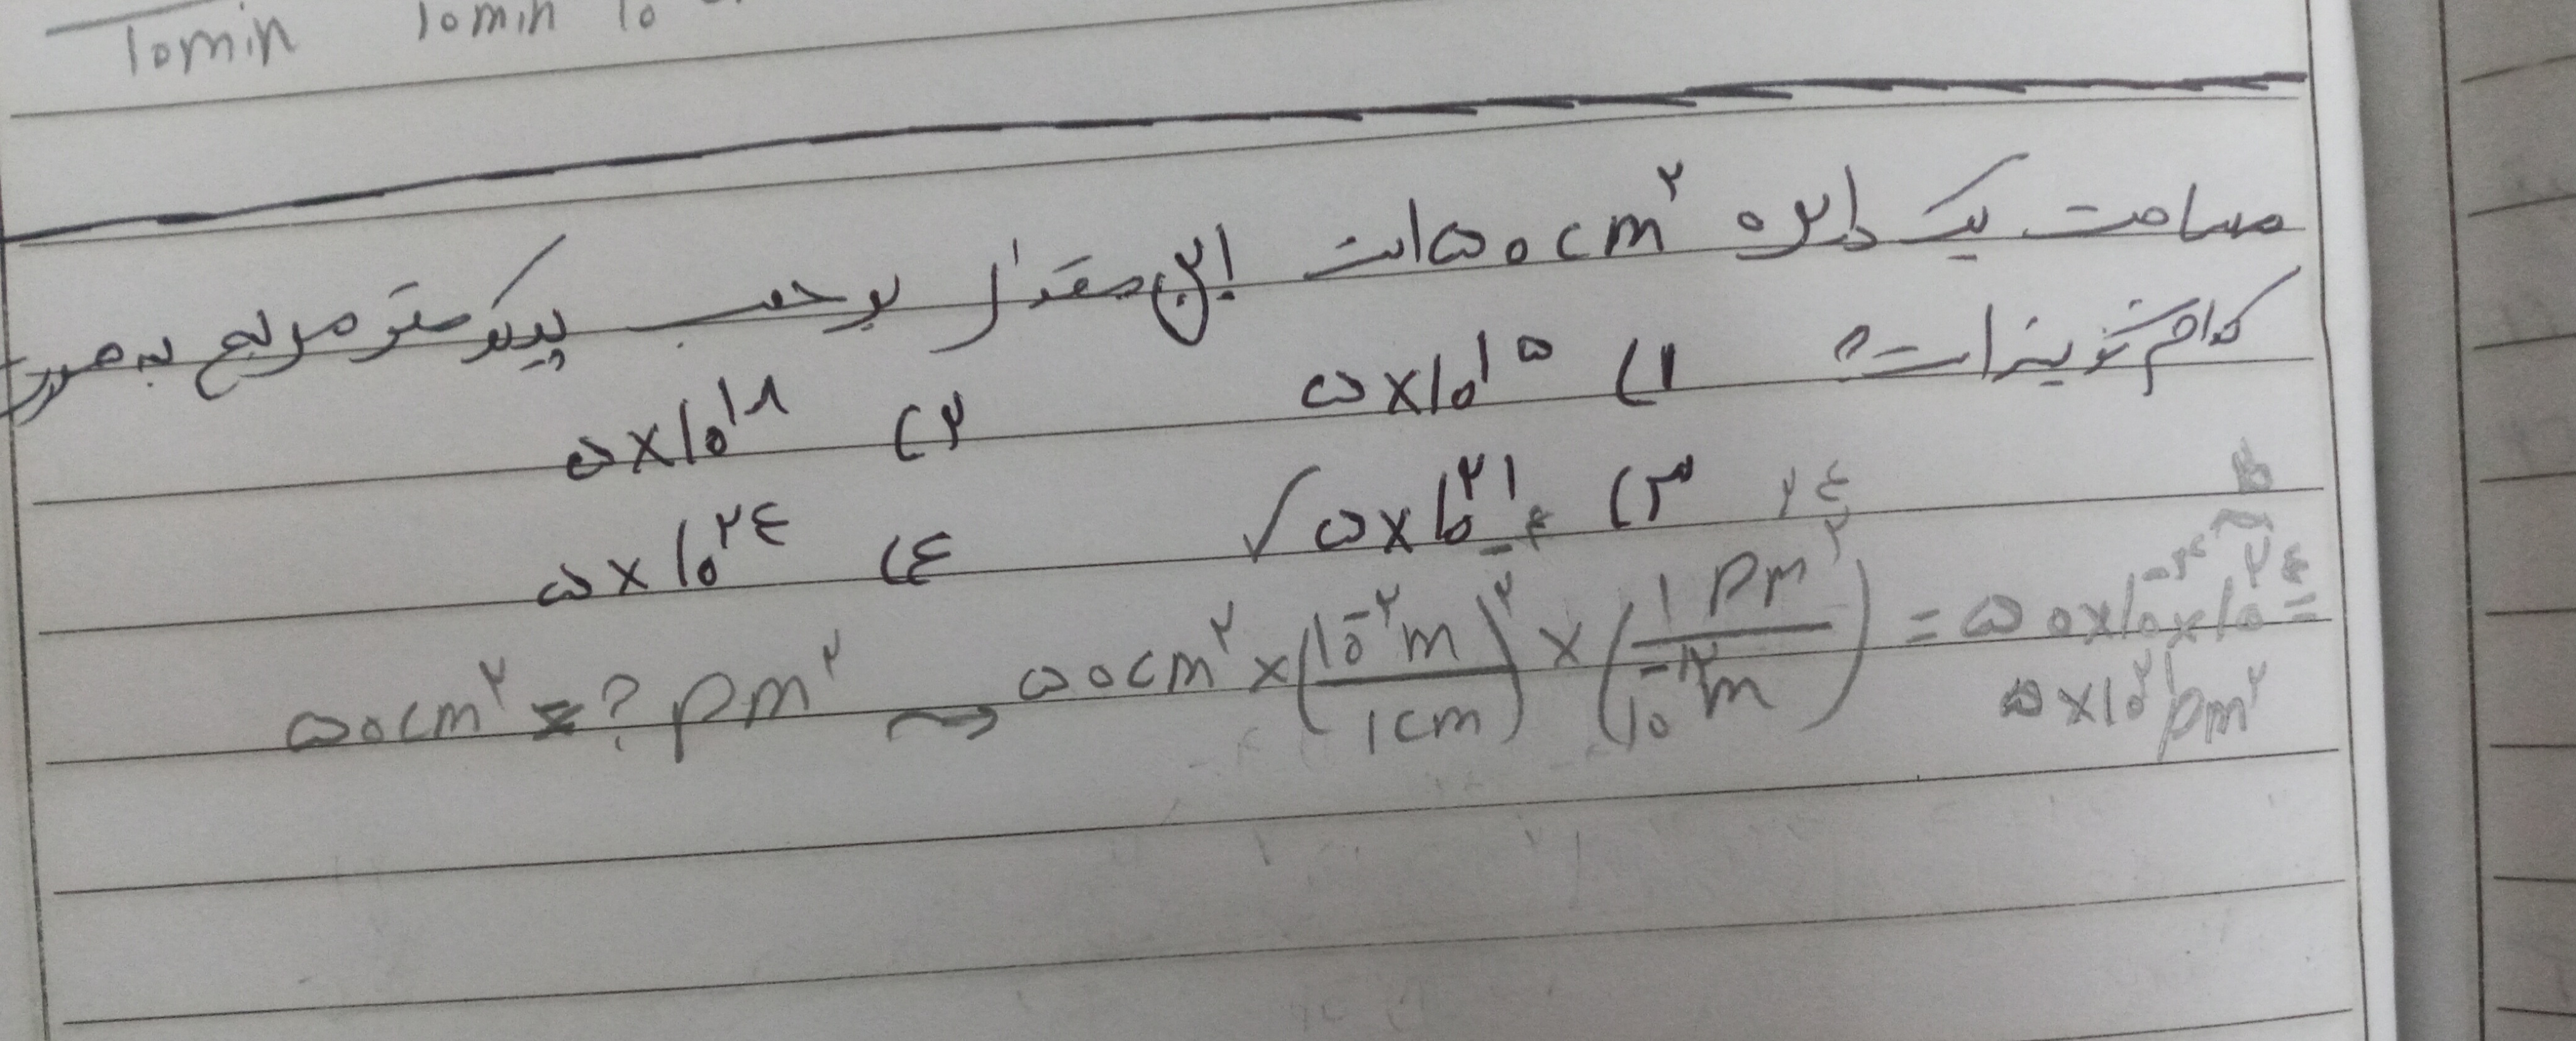 10min 10min 10
مساحت یک دایره ۵۰cm² است این مقدار برحسب پیکومتر مربع به صورت
کدام گزینه است؟ ۱) ۵×۱۰¹⁵ ۲) ۵×۱۰¹⁸
۳) ۵×۱۰²¹ ✓ ۴) ۵×۱۰²⁴
۵۰cm² = ? pm² → ۵۰cm² × (۱۰⁻²m / ۱cm)² × (۱pm / ۱۰⁻¹²m)² = ۵۰×۱۰⁻⁴×۱۰²⁴ =
۵×۱۰²¹ pm²